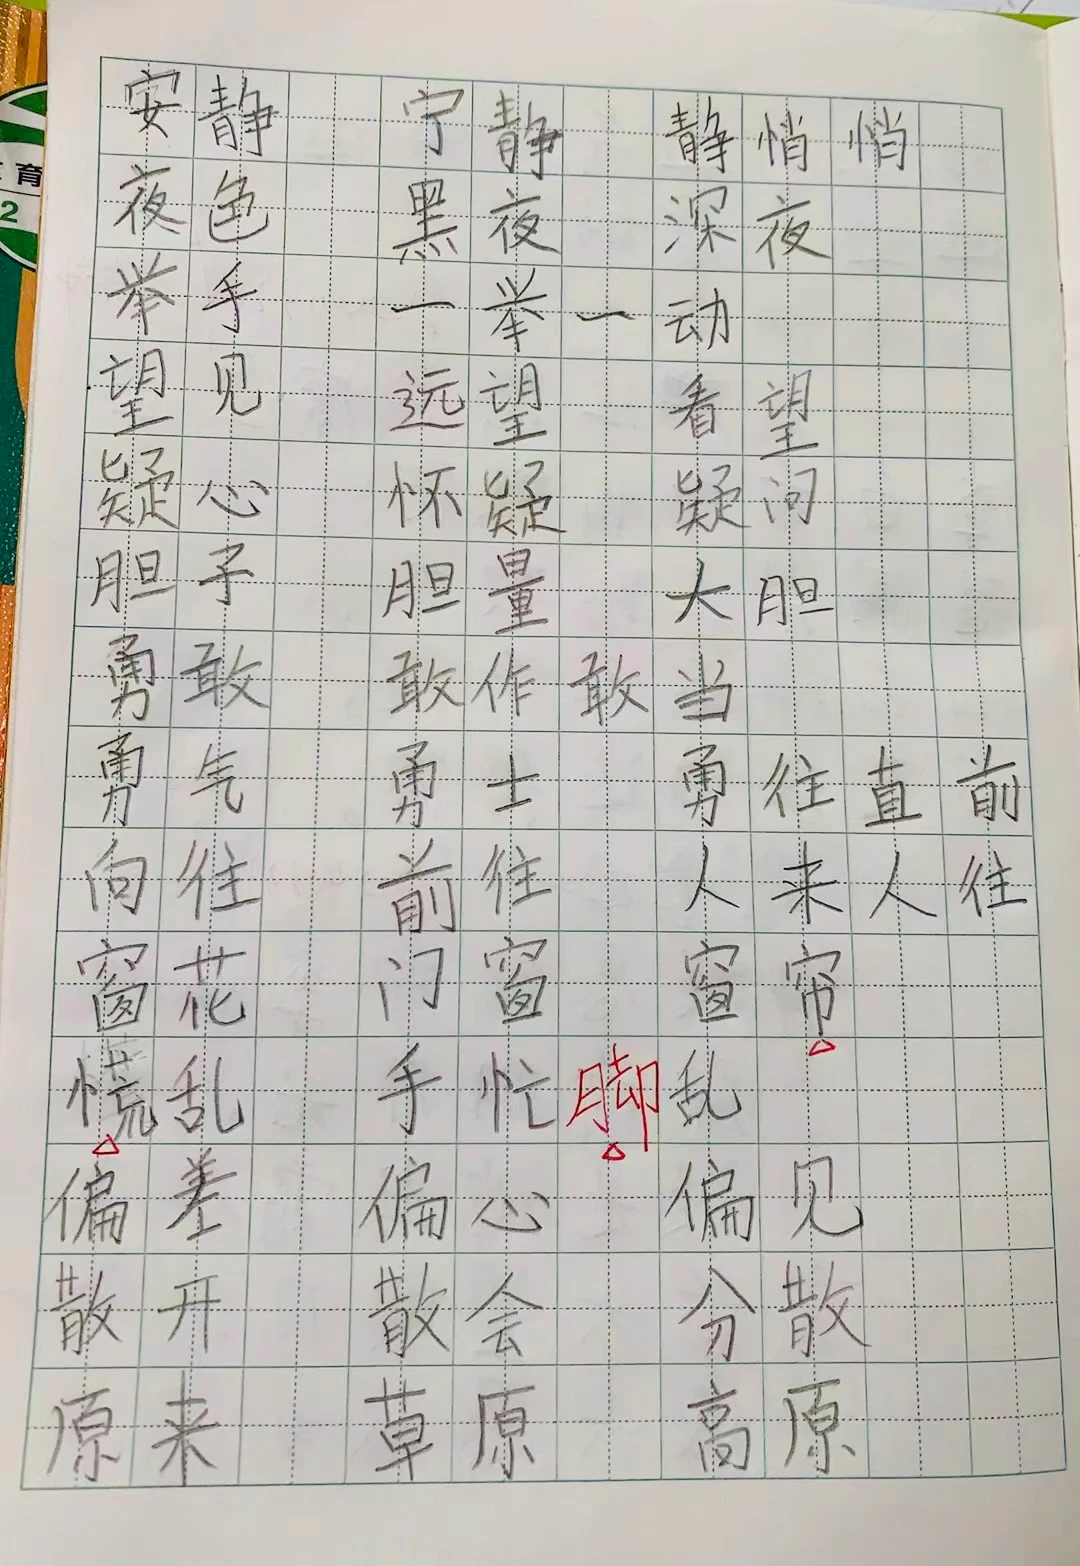 育
2
安静 宁静 静悄悄
夜色 黑夜 深夜
举手 一举一动
望见 远望 看望
疑心 怀疑 疑问
胆子 胆量 大胆
勇敢 敢作敢当
勇气 勇士 勇往直前
向往 前往 人来人往
窗花 门窗 窗帘
慌乱 手忙脚乱
偏差 偏心 偏见
散开 散会 分散
原来 草原 高原